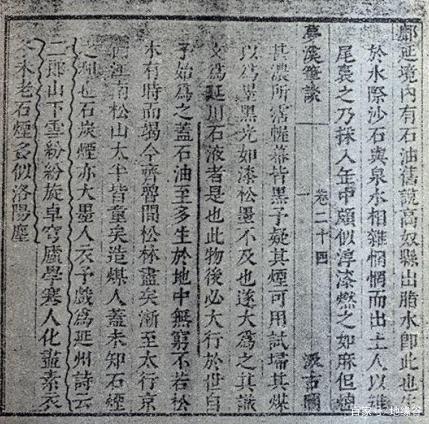 鄜延境內有石油舊說高奴縣出脂水即此也生
於水際沙石與泉水相雜惘惘而出土人以雉
尾裛之乃採入缶中頗似淳漆燃之如麻但煙
夢溪筆談 卷二十四 汲古閣
甚濃所沾幄幕皆黑予疑其煙可用試掃其煤
以為墨黑光如漆松墨不及也遂大為之其識
文為延川石液者是也此物後必大行於世自
予始為之蓋石油至多生於地中無窮不若松
木有時而竭今齊魯間松林盡矣漸至太行京
西江南松山太半皆童矣造煤人蓋未知石煙
之利也石炭煙亦大墨人衣予戲為延州詩云
二郎山下雪紛紛旋卓穹廬學塞人化盡素衣
冬未老石煙多似洛陽塵
百家号/地缘谷